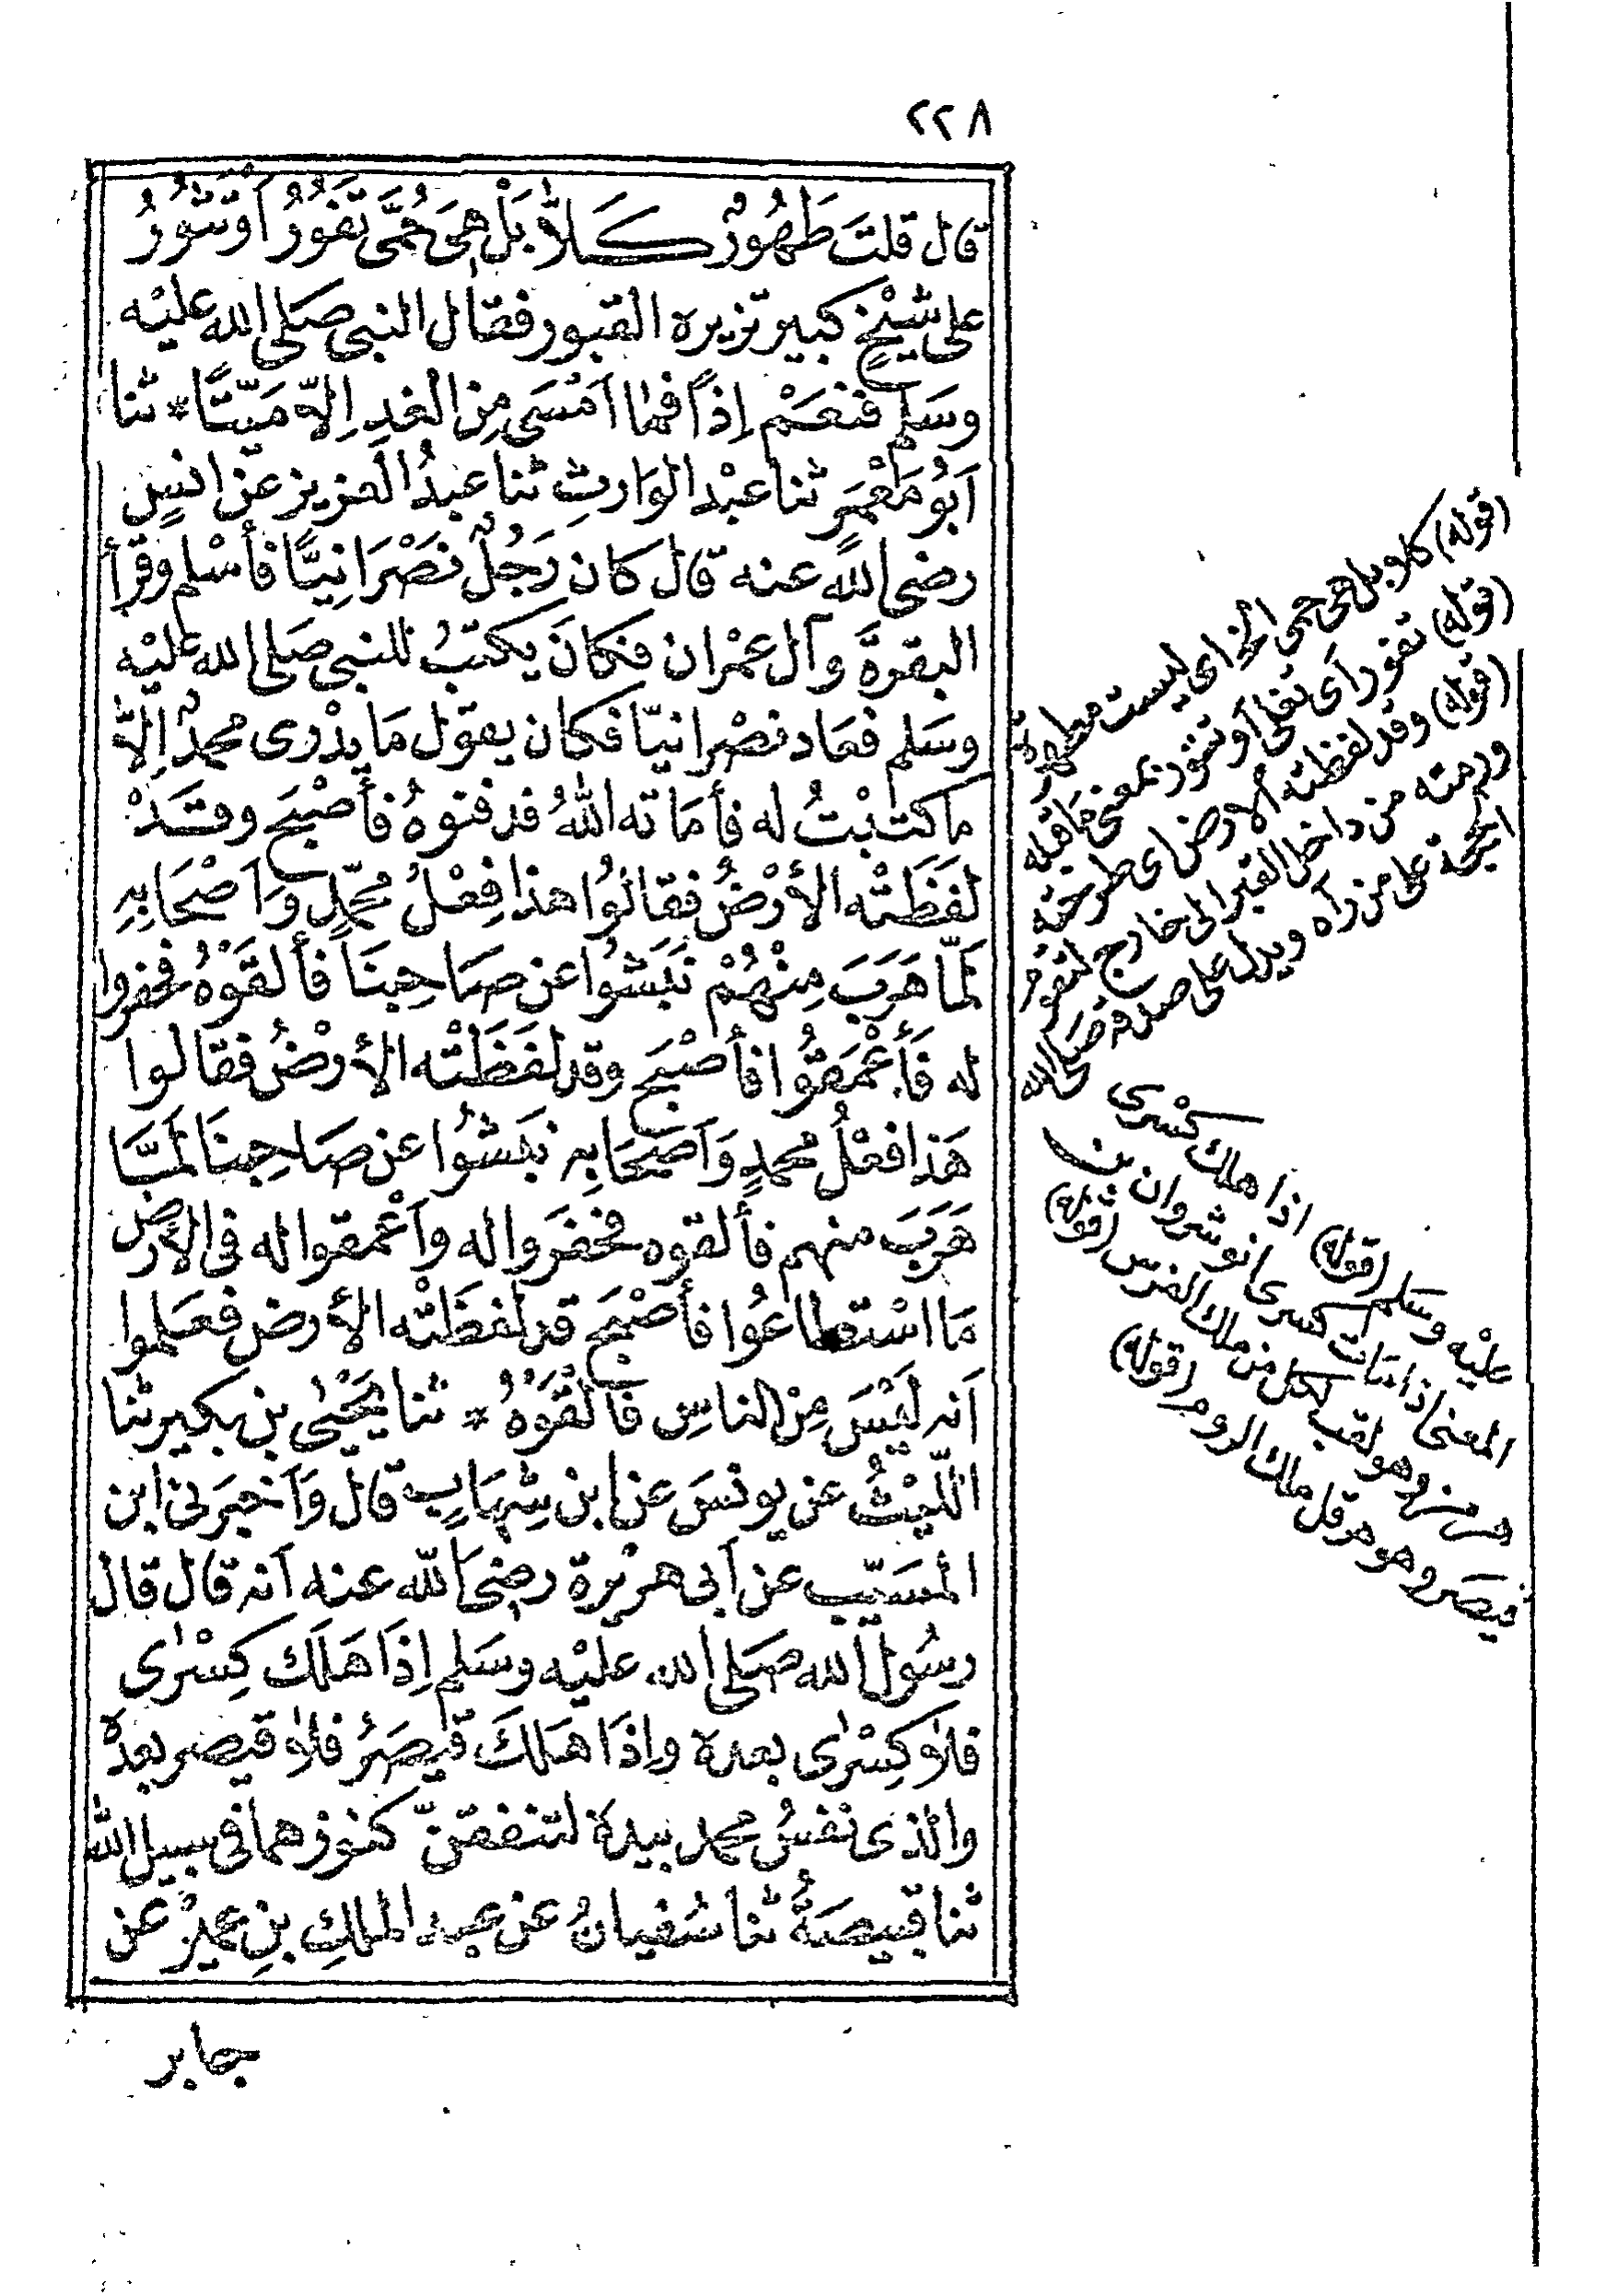 ٢٢٨
قال قلتَ طَهُورٌ كَلاّ بَلْ هِيَ حُمَّى تَفُورُ أَوْ تَثُورُ
على شَيْخٍ كبير تزيره القبور فقال النبى صَلى الله عليْه
وسَلم فنعَمْ إِذًا فما اَمْسَى مِن الغدِ اِلاّ مَيّتًا * ثنا
اَبُو مَعْمَرٍ ثنا عبْد الوَارثِ ثنا عبدُ العزيز عن انسٍ
رضى الله عنه قال كان رَجُلٌ نَصْرَانِيًّا فأسْلم وقرأ
البقرةَ وآل عمْران فكانَ يكتبُ للنبى صَلى الله عليْه
وسَلم فعاد نصْرانيّا فكان يقول مَا يدْرى محمدٌ اِلاّ
ما كتبْتُ له فأمَاته اللهُ فدفنوهُ فأصْبَح وقَدْ
لفَظَتْه الأرْضُ فقالوُا هذا فِعْلُ محمّدٍ وَاَصْحَابِهِ
لَمّا هَرَبَ مِنْهُمْ نَبَشُوا عن صَاحِبنَا فألقَوْهُ فحفروا
له فَأَعْمَقُوا فأصْبَح وقد لفَظَتْه الأرْضُ فقالوا
هَذا فعْلُ محمدٍ وَاَصْحَابِهِ نبَشُوا عن صَاحِبنَا لَمَّا
هَرَبَ منهم فألقوه فحفَروا له وأعْمقوا له فى الارض
مَا اسْتطاعُوا فأصْبَح قد لفظَتْه الأرض فعَلموا
اَنه ليْسَ مِنْ الناسِ فألقَوْهُ * ثنا يَحْيٰى بن بكير ثنا
اللّيْثُ عن يونسَ عن ابن شِهَابٍ قال وَاَخبرَنى ابن
المسَيّب عن اَبى هريْرة رضىَ الله عنه اَنه قال قال
رسُول الله صَلى الله عليْه وسَلم اِذَا هَلَك كِسْرٰى
فلا كِسْرٰى بعده واِذَا هَلكَ قيصَرُ فلا قيصر بعده
والذى نفسُ محمد بيده لتنفقنّ كنوزهما فى سبيل الله
ثنا قبيصَةُ ثنا سُفيانُ عن عبد الملكِ بنِ عميرْ عن
جابر
(قوله) كلا بل هى حمى الخ اى ليست مطهرة
(قوله) تفور اَى تغلى اَو تثور بمعنى ما قبله
(قوله) وقد لفظته الارض اى طرحته
ورمته من داخل القبر الى خارج لتقوم
الحجة على من رآه ويدل على صدقه صلى الله
عليْه وسَلم (قوله) اذا هلك كسْرى
المعنى اذا مَات كسرى انوشروان بن
هرمز وهو لقب لكل من ملك الفرس (قوله)
قيصَر وهو هرقل ملك الروم (قوله)